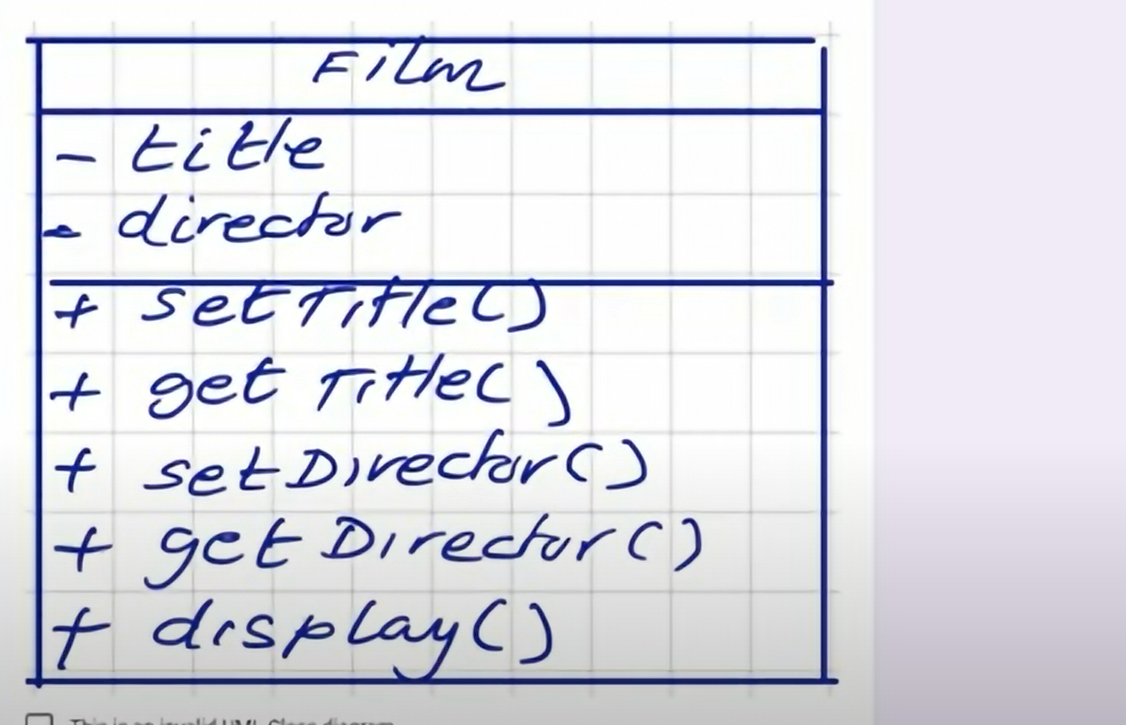 Film
- title
- director
+ setTitle()
+ getTitle()
+ setDirector()
+ getDirector()
+ display()
This is an invalid UML Class diagram